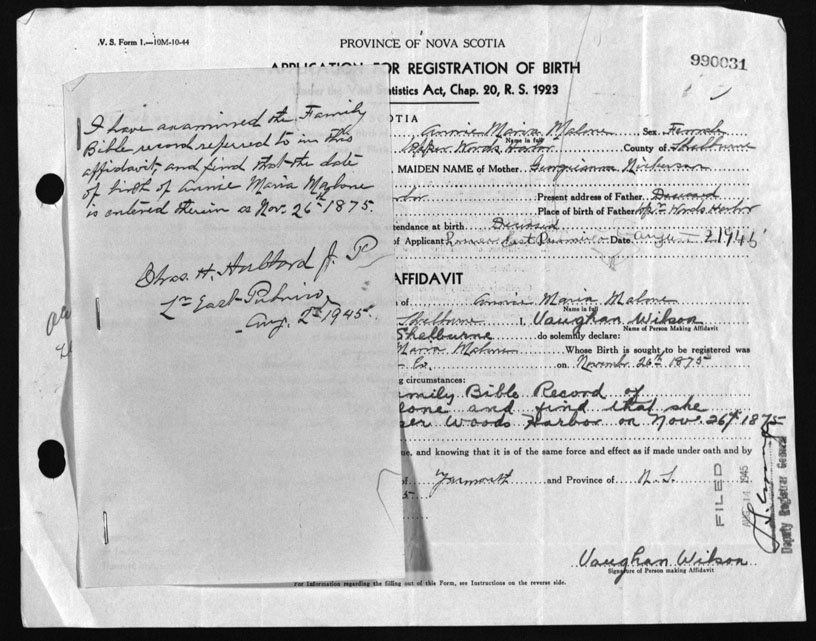 V. S. Form 1.—10M-10-44
PROVINCE OF NOVA SCOTIA
990031
APPLICATION FOR REGISTRATION OF BIRTH
Under the Vital Statistics Act, Chap. 20, R. S. 1923
I have examined the Family
Bible record referred to in this
affidavit, and find that the date
of birth of Annie Maria Malone
is entered therein as Nov. 26th 1875.
Chas. H. Hubbard J. P.
East Pubnico
Aug. 2nd 1945.
OTIA
Annie Maria Malone Sex Female
Name in full
Upper Woods Harbor County of Shelburne
MAIDEN NAME of Mother Georgianna Nickerson
bor Present address of Father Deceased
Place of Birth of Father Upr Woods Harbor
tendance at birth Deceased
of Applicant Lower East Date Aug 2 1945
AFFIDAVIT
n of Annie Maria Malone
Name in full
Shelburne I, Vaughan Wilson
Name of Person Making Affidavit
Shelburne do solemnly declare:
Maria Malone Whose Birth is sought to be registered was
on November 26th 1875
ng circumstances:
amily Bible Record of
lone and find that she
per Woods Harbor on Nov. 26th 1875
ue, and knowing that it is of the same force and effect as if made under oath and by
of Yarmouth and Province of N. S.
5
FILED
14 1945
Deputy Registrar General
Vaughan Wilson
Signature of Person making Affidavit
For Information regarding the filling out of this Form, see Instructions on the reverse side.